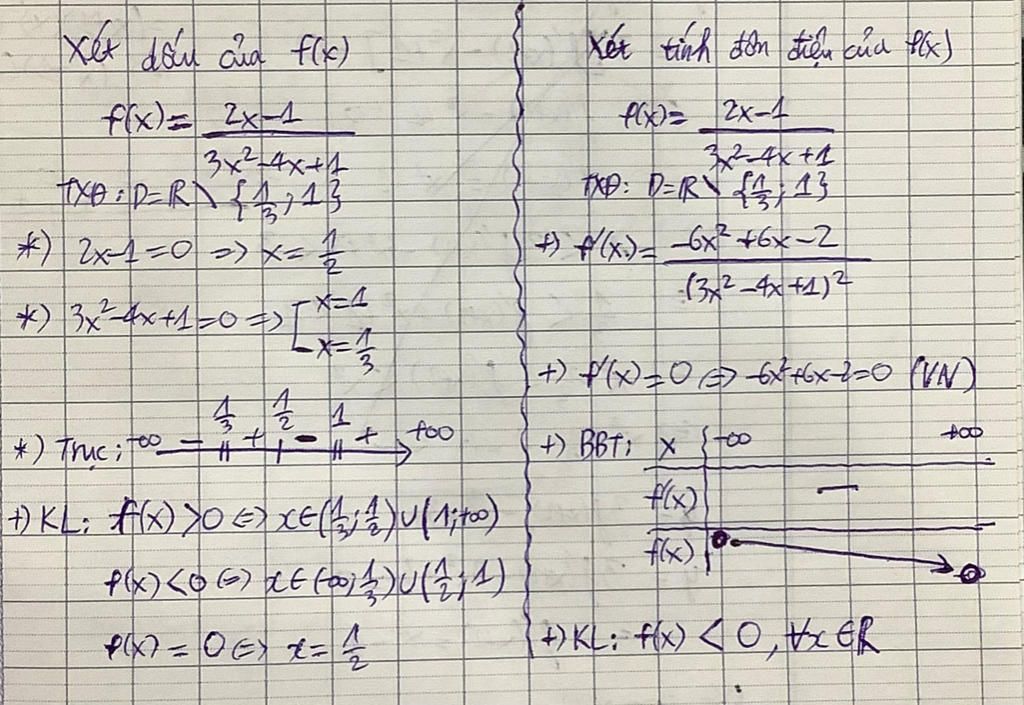 Xét dấu của f(x)
f(x) = (2x-1)/(3x²-4x+1)
TXĐ: D=R \ {1/3; 1}
*) 2x-1=0 => x=1/2
*) 3x²-4x+1=0 => [x=1
x=1/3
1/3 1/2 1
*) Trục: -∞ - || + | - || + +∞
+) KL: f(x) >0 <=> x∈(1/3;1/2)∪(1;+∞)
f(x) <0 <=> x∈(-∞;1/3)∪(1/2;1)
f(x) = 0 <=> x = 1/2
Xét tính đơn điệu của f(x)
f(x) = (2x-1)/(3x²-4x+1)
TXĐ: D=R \ {1/3; 1}
+) f'(x) = (-6x²+6x-2)/(3x²-4x+1)²
+) f'(x) = 0 <=> -6x²+6x-2=0 (VN)
+) BBT: x -∞ +∞
f'(x) -
f(x)
+) KL: f(x) < 0, ∀x∈R